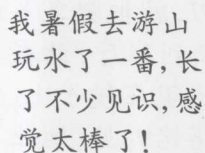 我暑假去游山
玩水了一番,长
了不少见识,感
觉太棒了!